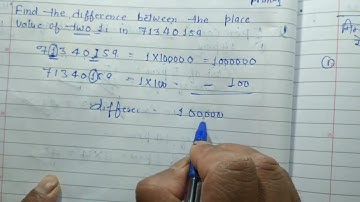 Find the difference between the place
value of two 1s in 71340159
71340159 = 1×100000 = 1000000
71340159 = 1×100 = - 100
differece = 100000
(1)